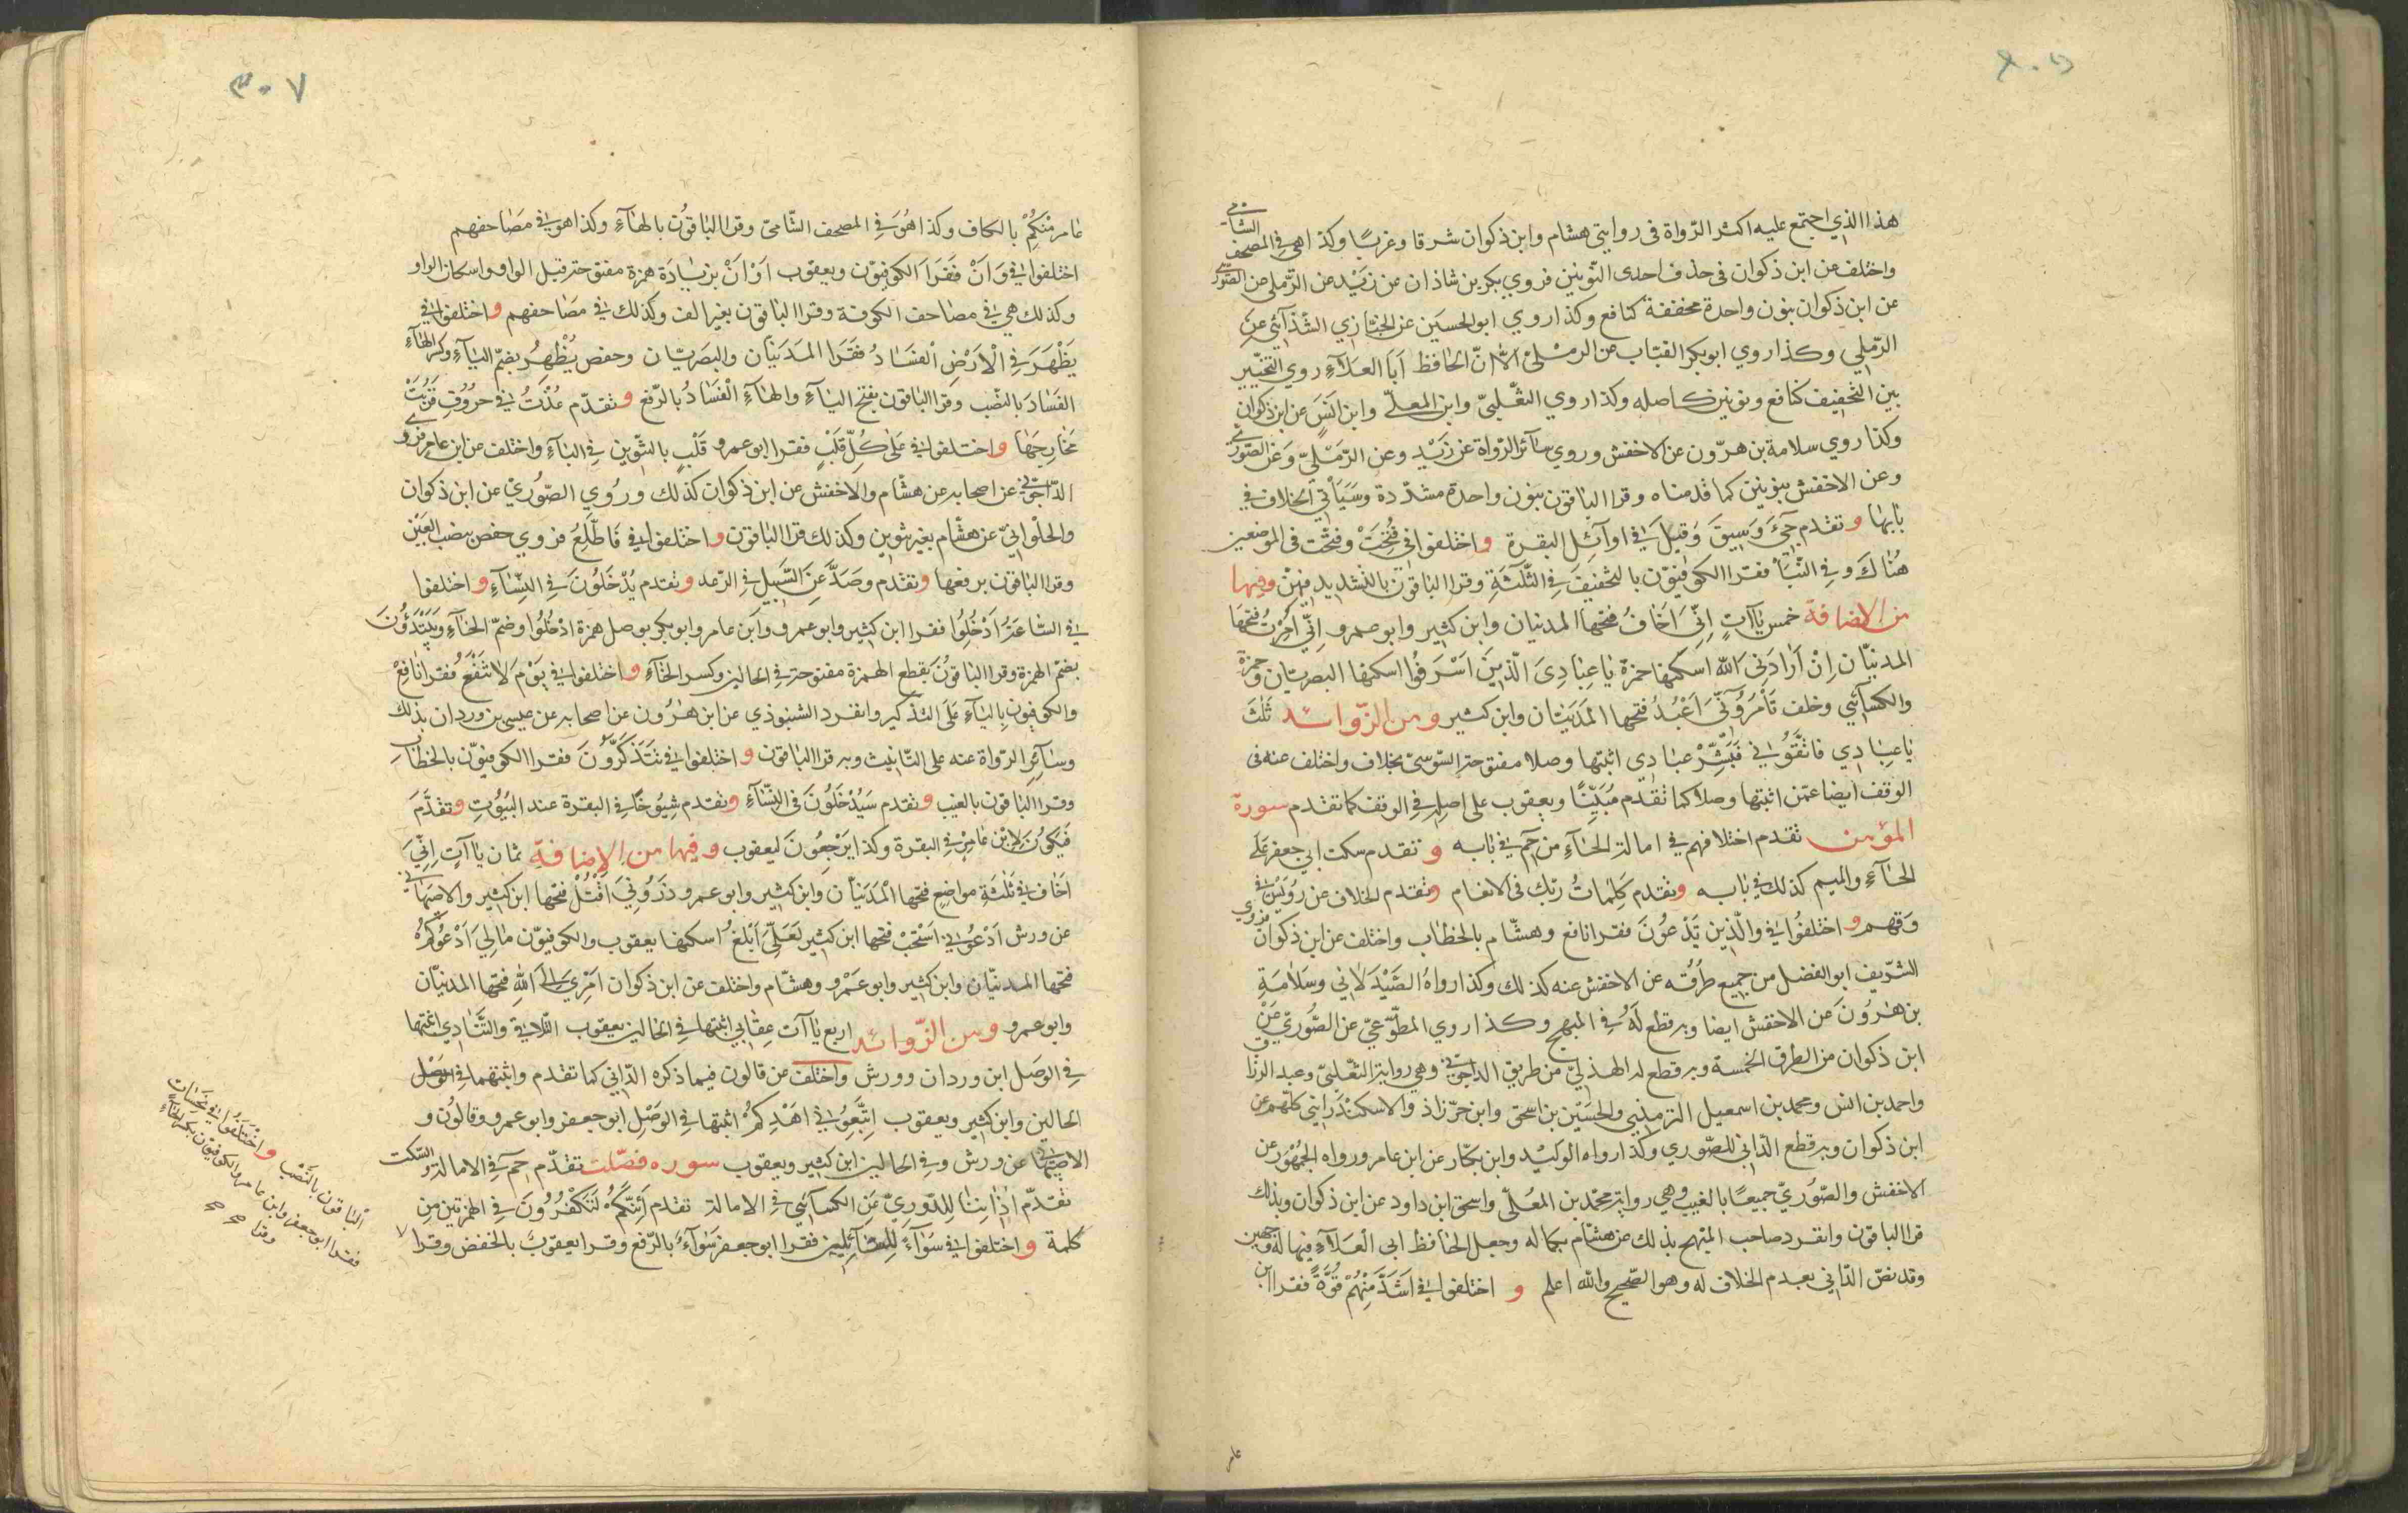 هذا الذي اجتمع عليه اكثر الرّواة فى روايتى هشام وابن ذكوان شرقا وغربًا وكذا هي فِي المصحف الشامى
واختلف عن ابن ذكوان فى حذف احدى النّونين فروي بكر بن شاذان عن زَيْد عن الرّملى عن الصّورى
عن ابن ذكوان بنون واحدة مخففة كنافع وكذا روي ابو الحسَين عن الخبّازي الشّذآئي عن
الرّملي وكذا روي ابو بكر القبّاب عن الرمْلىْ الاّ انّ الحافظ اَبَا العلآءِ روي التخيير
بين التخفيف كنافع ونونين كاصله وكذا روي التغْلبيّ وابن المعلّى وابن انَسٍ عن ابن ذكوان
وكذا روي سلامة بن هرّون عن الاخفش وروي سآئر الرّواة عن زَيْد وعن الرّمْليّ وَعَن الصّورىّ
وعن الاخفش بنونين كما قدمناه وقرا الباقون بنون واحدة مشدّدة وسَيَأتى الخلاف فِى
بابها وتقدم جِىءَ وَسِيقَ وَقِيلَ فى اوآئل البقرة واختلفوا فى فُتِحَتْ وفتحت فى الموضعين
هُنَاكَ وفِى النّبَأ فقرا الكوفيّون بالتخفيف فِى الثّلٰثَةِ وقرا الباقون بالتشديد فيهنّ وفيها
من الاضافة خمس ياآتٍ اِنّى اَخَافُ فتحها المدنيان وابن كثير وابو عمرو اِنّى اُمِرْتُ فتحها
المدنيّان اِنْ اَرَادَنِىَ اللّه اسكنها حمزة يَا عِبَادِىَ الّذِينَ اَسْرَفُوا اسكنها البصريّان وحمزة
والكسآئي وخلف تَأمُرُونّى اَعْبُدُ فتحها المدَنيّان وابن كثير ومن الزّوائد ثلٰث
يَا عِبَادِي فَاتَّقُونِى فَبَشِّرْ عِبَادِي اثبتها وصلا مفتوحة السّوسىّ بخلاف واختلف عنه فى
الوقف ايضا عمّن اثبتها وصلاً كما تقدم مُبَيَّنًا ويعقوب على اصله فِى الوقف كما تقدم سورة
المؤمن تقدم اختلافهم فى امالة الحآءِ من حٰم فى بابه وتقدم سكت ابى جعفر عَلَى
الحآءِ والميم كذلك فى بابه وتقدم كَلِمَاتُ رَبّك فى الانعام وتقدم الخلاف عن رُوَيْسٍ فى
وَقِهِم واختلفُوا فى والّذين يَدْعُونَ فقرا نافع وهشام بالخطاب واختلف عن ابن ذكوان فروي
الشّريف ابو الفضل من جميع طرُقه عن الاخفش عنه كذلك وكذا رواهُ الصّيْدَلاني وسَلَامَةِ
بن هٰرُونَ عن الاخفش ايضا وبه قطع لَهُ فِى المبهج وكذا روي المطّوّعيّ عن الصّورِيّ عَنْ
ابن ذكوان من الطرق الخمسة وبه قطع له الهذليّ من طريق الداجونى وهي رواية التّغلبىّ وعبد الرزاق
واحمد بن انس ومحمد بن اسمعيل الترمذىي والحسَيْن بن اسحق وابن خرّزاذ والاسكندَرَانى كلّهم عن
ابن ذكوان وبه قطع الدّاني للصّوري وكذا رواه الوَلِيْد وابن بكّار عن ابن عامر ورواه الجُمْهُور عن
الاخفش والصّورِيّ جميعًا بالغيب وهي رواية محمّد بن المعَلّى واسحق ابن داود عن ابن ذكوان وبذلك
قرا الباقون وانفرد صاحب المبهج بذلك عن هشام بكماله وجعل الحافظ ابى العَلآءِ فيها له وجهين
وقد نصّ الدّاني بعدم الخلاف له وهو الصّحيح واللّه اعلم واختلفوا فى اَشَدَّ مِنْهُمْ قُوَّةً فقرا ابن
عامر
٣٠٧
عَامر مِنْكُمْ بالكاف وكذا هُوَ فِى المصحف الشّامىّ وقرا الباقونُ بالهآءِ وكذا هو فى مصَاحفهم
اختلفوا فى وَاَنْ فَقَرَا الكوفيّون ويعقوب اَوْ اَنْ بزيَادَة همزة مفتوحة قبل الواو واسكان الواو
وكذلك هي فى مصاحف الكوفة وقرا الباقون بغير الف وكذلك فى مصَاحفهم واختلفوا فى
يَظْهَرَ فِى الْاَرْضِ الْفَسَادُ فَقَرَا المَدَنيَان والبصَريّان وحفص يُظْهِرَ بضمّ اليآءِ وكسر الهآءِ
الفَسَادَ بالنّصب وقرا الباقون بفتح اليآءِ والهآءِ الْفَسَادُ بالرّفع وتقدّم عُذْتُ فى حرُوفِ قَرُبَتْ
مَخَارِجهَا واختلفوا فى عَلَى كُلِّ قَلْبٍ فقرا ابو عمرو قَلْبٍ بالتنّوين فِى البآءِ واختلف عن ابن عامر فروي
الدّاجونى عن اصحابه عن هشام والاخفش عن ابن ذكوان كذلك ورُوي الصّوُرىّ عن ابن ذكوان
والحلْوانيّ عن هشّام بغير تنوين وكذلك قرا الباقون واختلفوا فى فَاَطَّلِعَ فروي حفص بنصب العَيْن
وقرا الباقون برفعها وتقدم وصَدَّ عَنِ السَّبِيلِ فى الرّعد وتقدم يُدْخَلُونَ فِى النِّسَآءِ واختلفوا
فى السَّاعَةُ اَدْخِلُوا فقرا ابن كثير وابو عمرو وابن عامر وابو بكر بوصل همزة ادْخُلُوا وضمّ الخآءِ وَيَبْتَدؤُنَ
بضمّ الهمزة وقرا الباقونُ بقطع الهمزة مفتوحة فى الحالين وكسر الخآءِ واختلفوا فى يَوْمَ لَا تَنْفَعُ فقرا نَافعْ
والكوفيون بِاليآءِ عَلَى التّذكير وانفرد الشنبوذي عن ابن هٰرُون عن اصحابه عن عيسى بن وردان بذلك
وسآئر الرّواة عنه على التّانيث وبه قرا الباقون واختلفوا فى تَتَذَكَّرُونَ فقرا الكوفيوّن بالخطاب
وقرا الباقون بالغيب وتقدم سَيَدْخُلُونَ فى النّسَآءِ وتقدم شِيُوخًا فى البقرة عند البُيُوتِ وتقَدَّمَ
فَيَكُونَ لِابْن عَامِرٍ فِى البقرة وكذا يَرْجعُونَ ليعقوب وفيها من الاِضافة ثمان ياآتٍ اِنّى
اَخَافُ فى ثَلٰثَةِ مواضع فتحها المْدَنيّان وابن كثير وابو عمرو ذَرُونِىَ اَقْتُلْ فتحها ابن كثير والاصبهانى
عن ورش اُدْعُونِى اَسْتَجِبْ فتحها ابن كثير لَعَلّى اَبْلُغُ اسكنها يعقوب والكوفيوّن مَالِىَ اَدْعُوكُمْ
فتحها المدنيّان وابن كثير وابو عَمْرو وهشّام واختلف عن ابن ذكوان اَمْرِىَ اِلَى اللّٰهِ فتحها المدنيّان
وابو عمرو ومن الزّوائد اربع ياآت عِقَابى اثبتها فى الحالين يعقوب التّلاقِ والتّنَادِ اثبتها
فِى الوَصل ابن وردان وورش واختلف عن قالون فيما ذكره الدّانى كما تقدم واثبتهما فى
الحالين وابن كثير ويعقوب اِتَّبِعُونِى اَهْدِكُمْ اثبتها فى الوَصْلِ ابو جعفر وابو عمرو وقالُون و
الاصبَهَانى عن ورش وفِى الحالين ابن كثير ويعقوب سوره فصّلت تقدّم حٰم فِى الامالة والسّكت
تقدّم اٰذَانِنَا لِلدّورِيّ عَنِ الكسآئى فِى الامالة تقدم اَئِنَّكُمْ لَتَكْفُرُونَ فِى الهمزتين مِن
كلمة واختلفوا فى سَوَآءً لِلسّآئِلِينَ فقرا ابو جعفر سَوَآءٌ بالرّفع وقرا يعقوبُ بالخفض وقرا
الباقون بالنّصْب واختَلَفُوا فى نَحِسَات
فقرا ابو جعفر وابن عامر والكوفيّون بكسر الحآءِ
وقرا